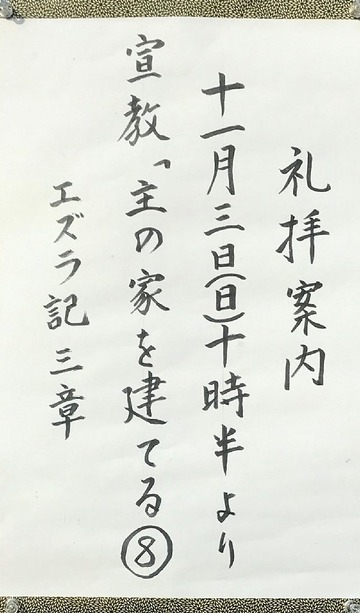 礼拝案内
十一月三日(日)十時半より
宣教「主の家を建てる⑧
エズラ記三章